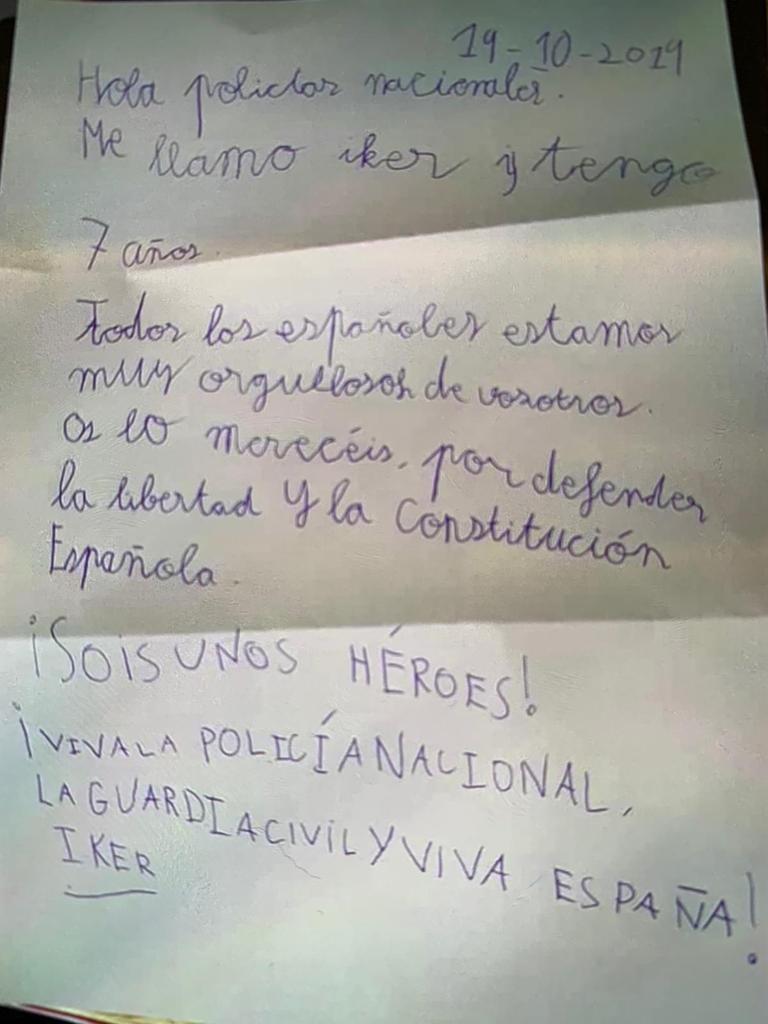 19-10-2019
Hola policías nacionales.
Me llamo iker y tengo
7 años.
Todos los españoles estamos
muy orgullosos de vosotros.
os lo merecéis, por defender
la libertad y la Constitución
Española.
¡SOIS UNOS HÉROES!
¡VIVA LA POLICÍA NACIONAL,
LA GUARDIA CIVIL Y VIVA ESPAÑA!
IKER